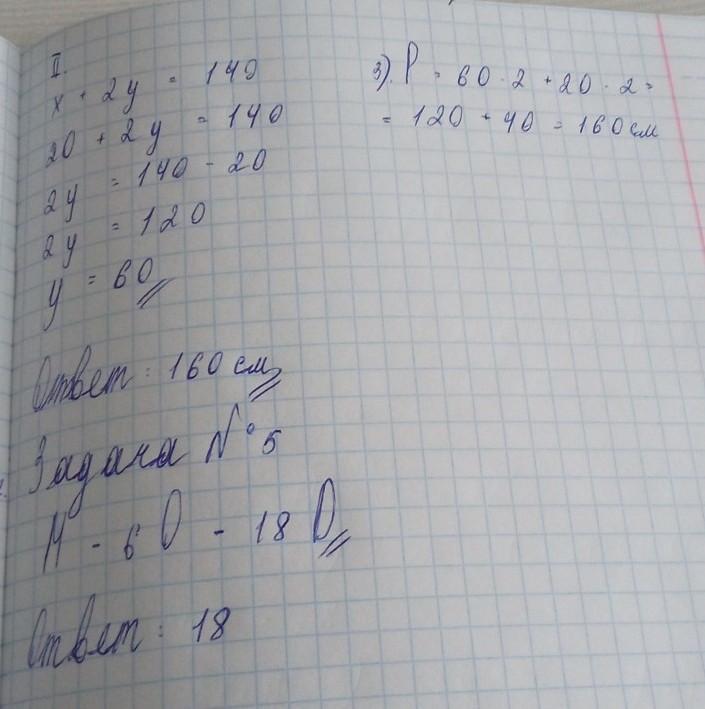 II.
x + 2y = 140
20 + 2y = 140
2y = 140 - 20
2y = 120
y = 60
3). P = 60 · 2 + 20 · 2 =
= 120 + 40 = 160 см
Ответ: 160 см
Задача №5
М - 6 О - 18 О
Ответ: 18